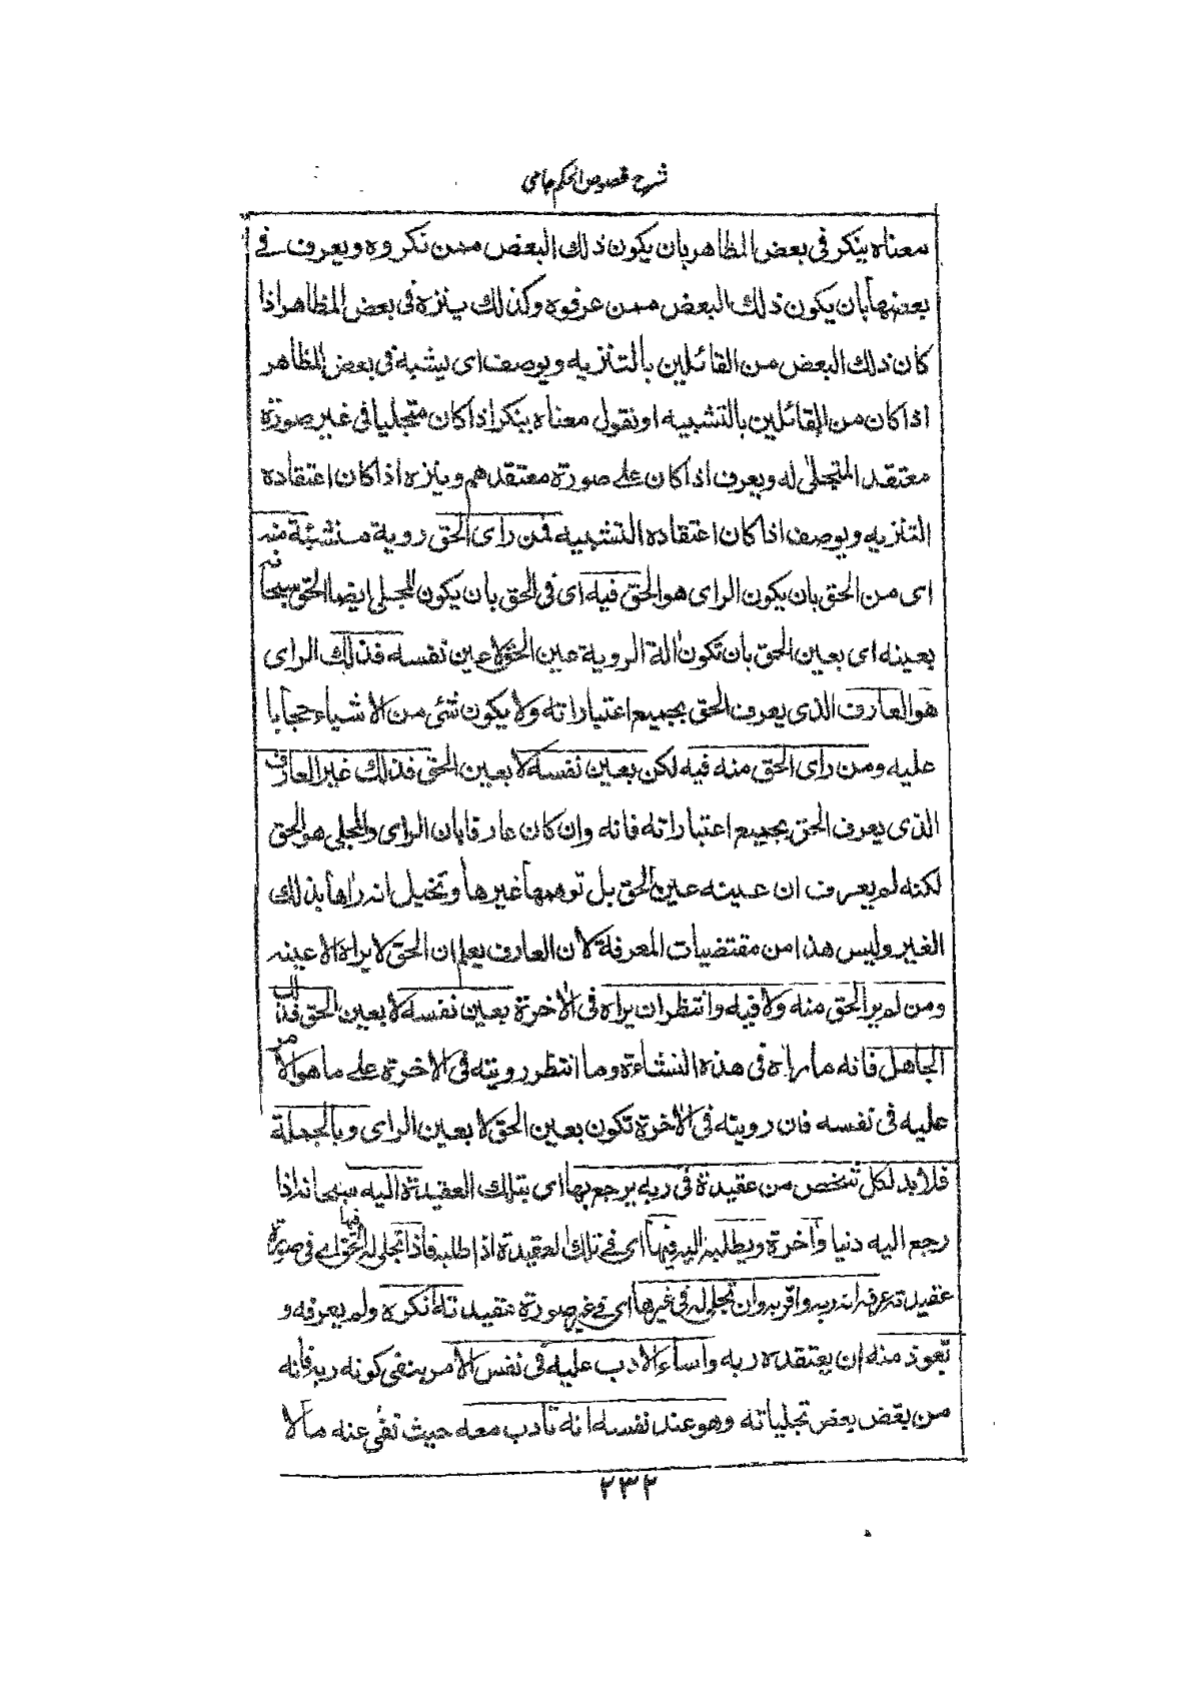 شرح فصوص الحكم جامى
معناه ينكر فى بعض المظاهر بان يكون ذلك البعض ممن نكروه ويعرف فے
بعضها بان يكون ذلك البعض ممن عرفوه وكذلك ينزه فى بعض المظاهر اذا
كان ذلك البعض من القائلين بالتنزيه ويوصف اى يشبه فى بعض المظاهر
اذا كان من القائلين بالتشبيه او نقول معناه ينكر اذا كان متجليا فى غير صورة
معتقد المتجلى له ويعرف اذا كان على صورة معتقدهم وينزه اذا كان اعتقاده
التنزيه ويوصف اذا كان اعتقاده التشبيه فمن راى الحق روية منشئة منه
اى من الحق بان يكون الراى هو الحق فيه اى فى الحق بان يكون المجلى ايضا الحق سبحانه
بعينه اى بعين الحق بان تكون الة الروية عين الحق لا عين نفسه فذلك الراى
هو العارف الذى يعرف الحق بجميع اعتباراته ولا يكون شئى من الاشياء حجابا
عليه ومن راى الحق منه فيه لكن بعين نفسه لا بعين الحق فذلك غير العارف
الذى يعرف الحق بجميع اعتباراته فانه وان كان عارفا بان الراى والمجلى هو الحق
لكنه لم يعرف ان عينه عين الحق بل توهمها غيرها وتخيل انه راها بذلك
الغير وليس هذا من مقتضيات المعرفة لان العارف يعلم ان الحق لا يراه الا عينه
ومن لم ير الحق منه ولا فيه وانتظر ان يراه فى الاخرة بعين نفسه لا بعين الحق فذلك
الجاهل فانه ما راه فى هذه النشاءة وما انتظر رويته فى الاخرة على ما هو الامر
عليه فى نفسه فان رويته فى الاخرة تكون بعين الحق لا بعين الراى وبالجملة
فلا بد لكل شخص من عقيدة فى ربه يرجع بها اى بتلك العقيدة اليه سبحانه اذا
رجع اليه دنيا وآخرة ويطلبه اليه فيها اى فے تلك العقيدة اذا طلبه فاذا تجلى له الحق فيها اے فى صورة
عقيدته عرفه انه ربه واقر به وان تجلى له فى غيرها اى فے غير صورة عقيدته انكره ولم يعرفه و
تعوذ منه ان يعتقده ربه واساء الادب عليه فى نفس الامر بنفى كونه ربه فانه
من بعض بعض تجلياته وهو عند نفسه انه تأدب معه حيث نفى عنه مالا
٢٣٢